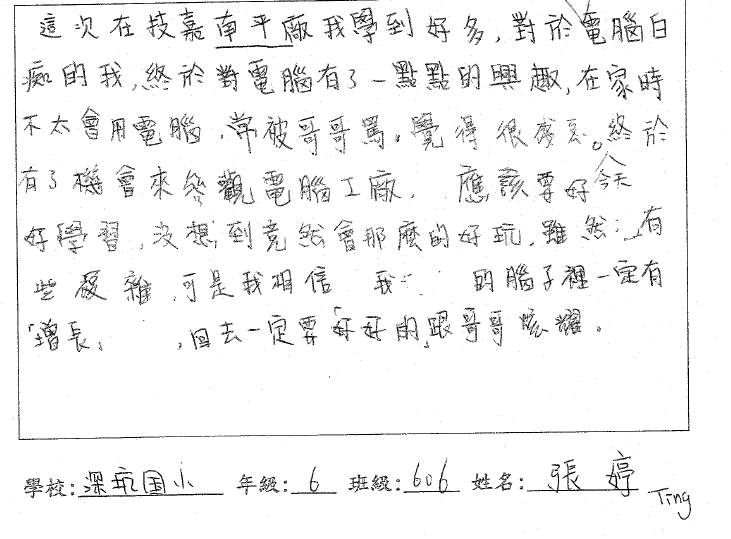 這次在技嘉南平廠我學到好多,對於電腦白
痴的我,終於對電腦有了一點點的興趣,在家時
不太會用電腦,常被哥哥罵。覺得很
。終於
有了機會來參觀電腦工廠.應該要好
今天
好學習,沒想到竟然會那麼的好玩,雖然有
些複雜,可是我相信 我 的腦子裡一定有
「增長」,回去一定要「好好的」跟哥哥炫耀。
學校:深坑国小 年級:6 班級:606 姓名:張婷
Ting